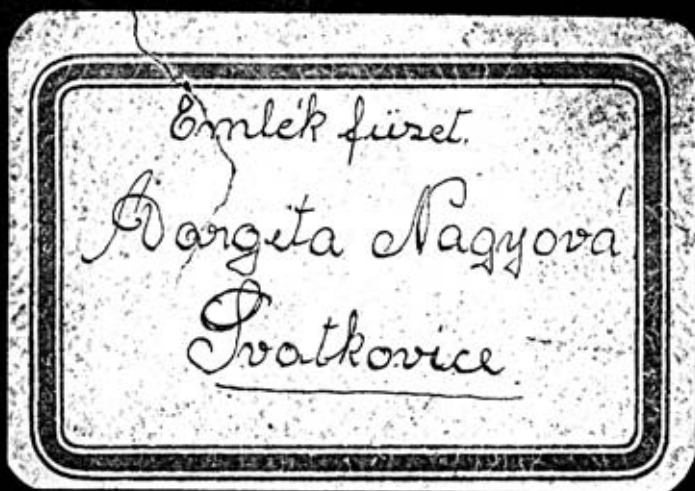 Emlék füzet.
Margita Nagyová
Ivatkovice